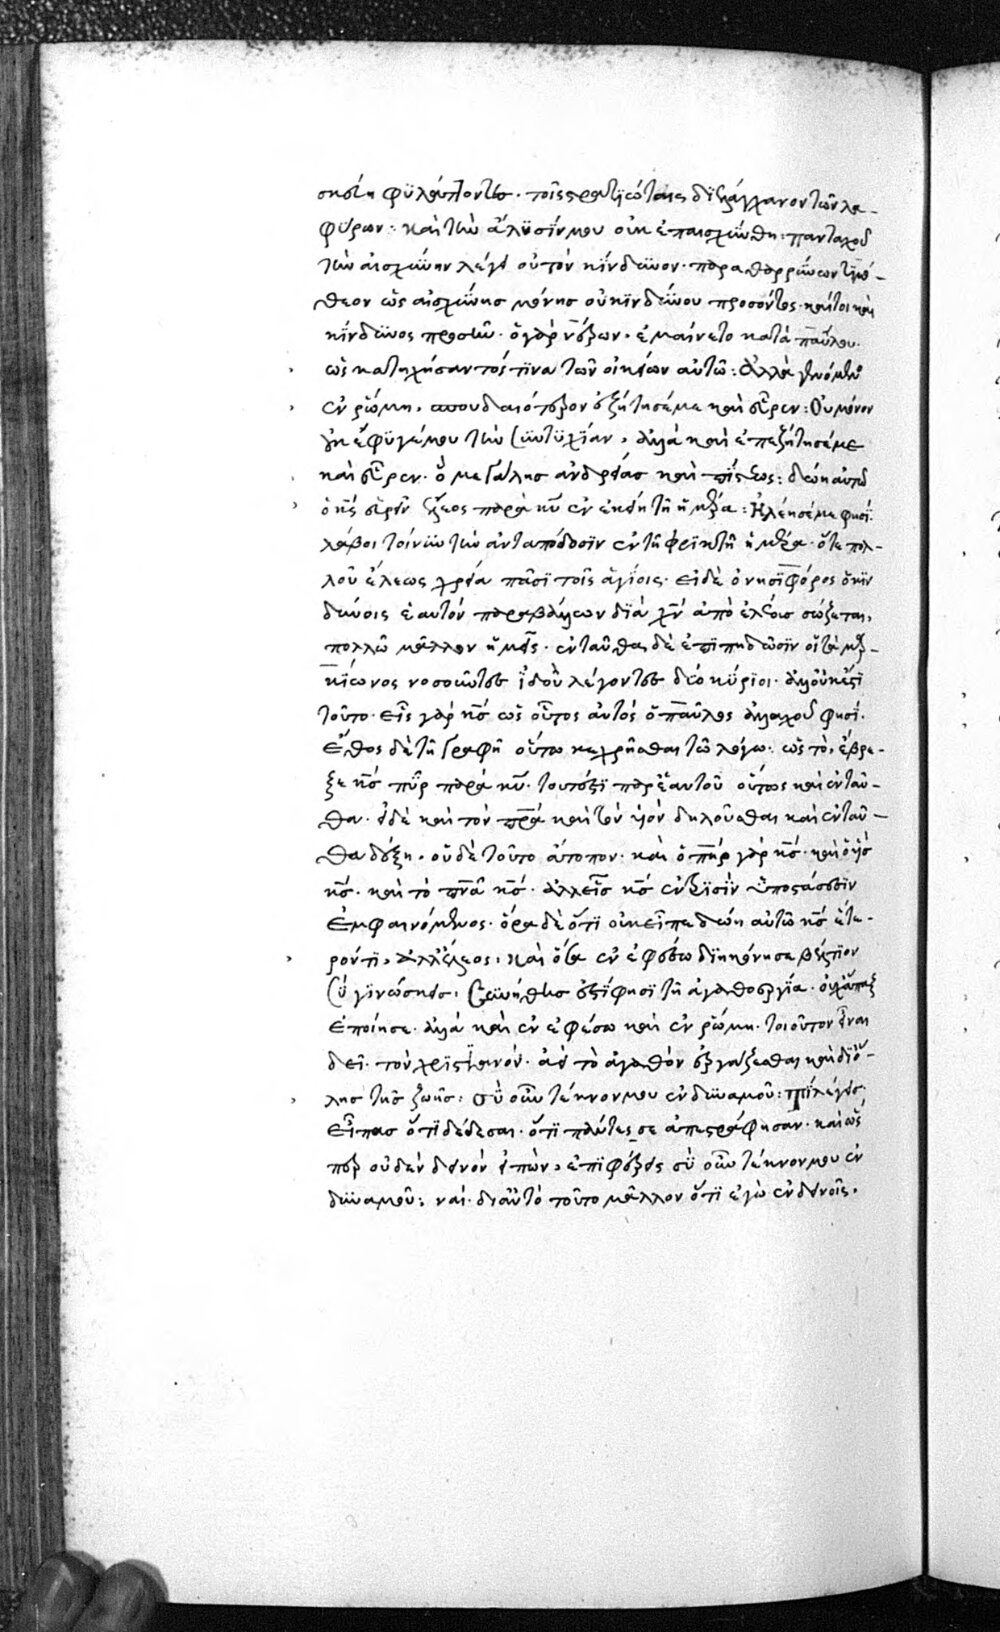 σκεύη φυλάττοντες. τοῖς στρατιώταις διελάγχανον τῶν λα-
φύρων: καὶ τὴν ἅλυσίν μου οὐκ ἐπαισχύνθη: πανταχοῦ
τὴν αἰσχύνην λέγει οὐ τὸν κίνδυνον. παραθαρρύνων τιμό-
θεον ὡς αἰσχύνης μόνης οὐ κινδύνου προσόντος. καίτοι καὶ
κίνδυνος προσῆν. ὁ γὰρ νέρων, ἐμαίνετο κατὰ παύλου.
ὡς κατηχήσαντός τινα τῶν οἰκείων αὐτῶ: Ἀλλὰ γενόμενος
ἐν ῥώμη, σπουδαιότερον ἐζήτησέ με καὶ εὗρεν: Οὐ μόνον
οὐκ ἔφυγέ μου τὴν συντυχίαν, ἀλλὰ καὶ ἐπεζήτησέ με
καὶ εὗρεν. ὢ μεγάλης ἀνδρείας καὶ πίστεως: δώη αὐτῶ
ὁ κς εὑρεῖν ἔλεος παρὰ κυ ἐν ἐκείνη τῆ ἡμέρα: Ἠλέησέ με φησί.
λάβοι τοίνυν τὴν ἀνταπόδοσιν ἐν τῆ φρικτῆ ἡμέρα. ὅτε πολ-
λοῦ ἐλέως χρεία πᾶσι τοῖς ἁγίοις. εἰ δὲ ὀνησιφόρος ὁ κιν
δύνοις ἑαυτὸν παραβάλλων διὰ χν ἀπὸ ἐλέους σώζεται,
πολλῶ μᾶλλον ἡμεῖς. ἐνταῦθα δὲ ἐπιπηδῶσιν οἱ τὰ μαρ-
κίωνος νοσοῦντες ἰδοὺ λέγοντες δύο κύριοι. ἀλλ οὐκ ἔστι
τοῦτο. εἷς γὰρ κς ὡς οὗτος αὐτὸς ὁ παῦλος ἀλλαχοῦ φησί.
Ἔθος δὲ τῆ γραφῆ οὕτω κεχρῆσθαι τῶ λόγω: ὡς τὸ, ἔβρε-
ξε κς πῦρ παρὰ κυ. τουτέστι παρ ἑαυτοῦ οὕτως καὶ ἐνταῦ-
θα. εἰ δὲ καὶ τὸν πρα καὶ τὸν υἱὸν δηλοῦσθαι καὶ ἐνταῦ-
θα δόξη, οὐδὲ τοῦτο ἄτοπον. καὶ ὁ πηρ γὰρ κς. καὶ ὁ υἱὸς
κς. καὶ τὸ πνα κς. ἀλλ εἷς κς ἐν τρισὶν ὑποστάσεσιν
ἐμφαινόμενος. ὅρα δὲ ὅτι οὐκ εἶπε δώη αὐτῶ κς ἕτε-
ρόν τι, ἀλλ ἔλεος, καὶ ὅσα ἐν ἐφέσω διηκόνησε βέλτιον
σὺ γινώσκεις, Συνήθης ἐστί φησι τῆ ἀγαθοεργία. οὐχ ἅπαξ
ἐποίησε. ἀλλὰ καὶ ἐν ἐφέσω καὶ ἐν ῥώμη. τοιοῦτον εἶναι
δεῖ. τὸν χριστιανόν. ἀεὶ τὸ ἀγαθὸν ἐργάζεσθαι καὶ δι ὅ-
λης τῆς ζωῆς: σὺ οὖν τέκνον μου ἐνδυναμοῦ: τί λέγεις,
εἶπας ὅτι δέδεσαι. ὅτι πάντες σε ἀπεστράφησαν. καὶ ὥς
περ οὐδὲν δεινὸν εἰπὼν, ἐπιφέρεις σὺ οὖν τέκνον μου ἐν
δυναμοῦ: ναί. δι αὐτὸ τοῦτο μᾶλλον ὅτι ἐγὼ ἐν δεινοῖς,